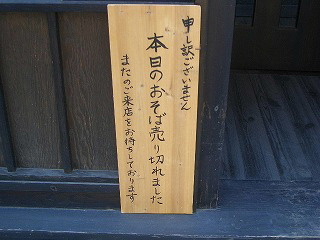 申し訳ございません
本日のおそば売り切れました
またのご来店をお待ちしております